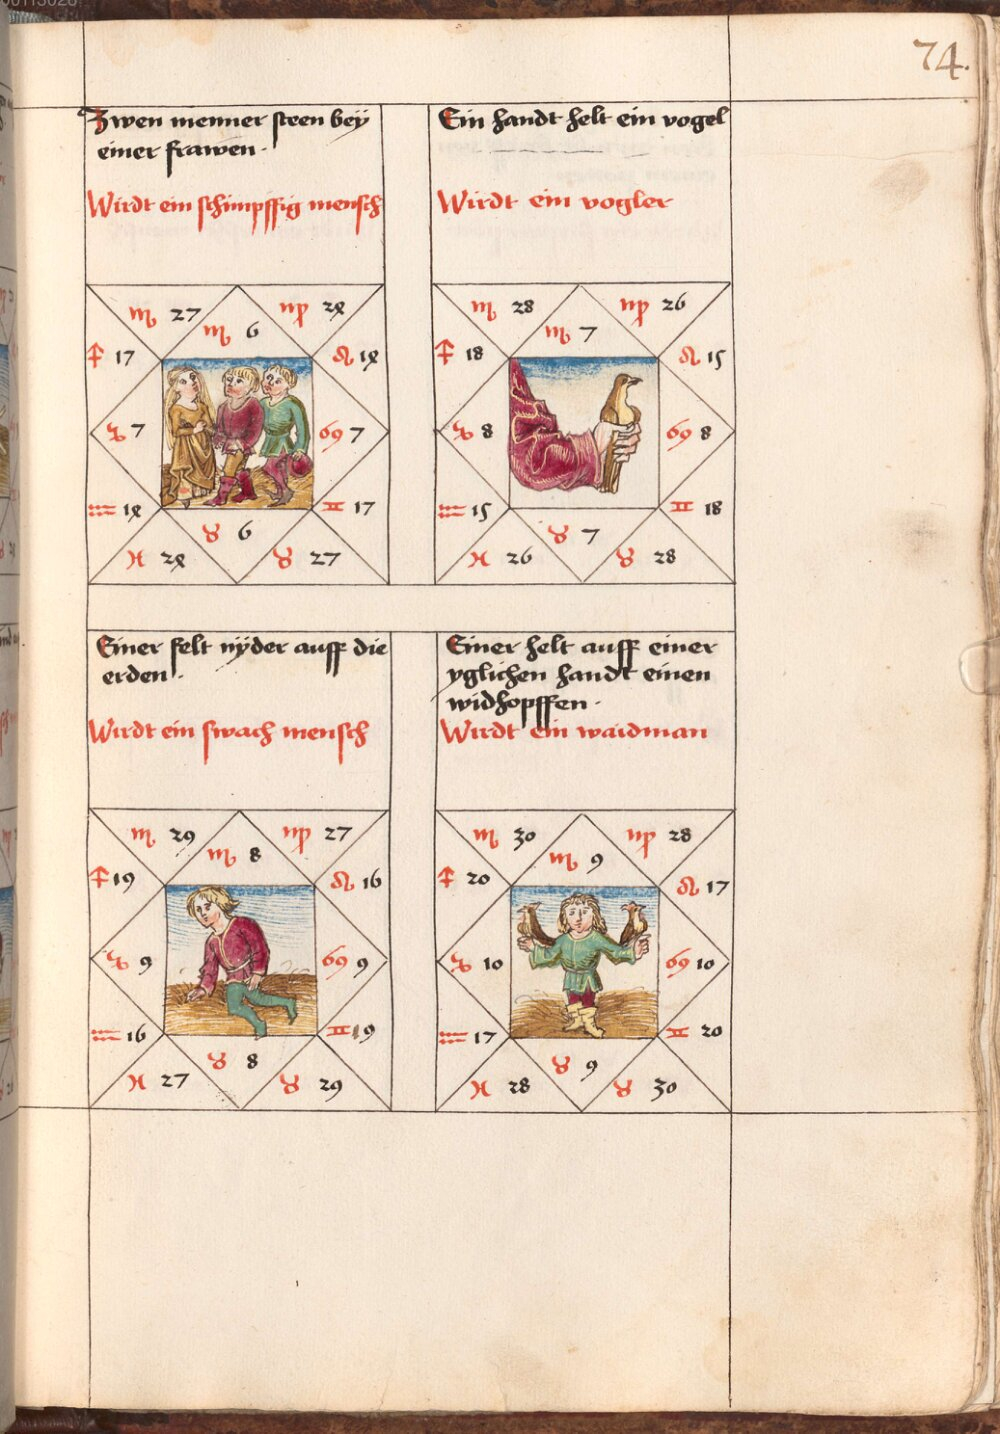 74.
Zwen menner steen bey
einer frawen.
Wirdt ein schimpffig mensch
♏ 27 ♍ 28
♏ 6
♐ 17 ♌ 18
♑ 7 ♋ 7
♒ 18 ♊ 17
♉ 6
♓ 28 ♉ 27
Ein handt helt ein vogel
Wirdt ein vogler
♏ 28 ♍ 26
♏ 7
♐ 18 ♌ 15
♑ 8 ♋ 8
♒ 15 ♊ 18
♉ 7
♓ 26 ♉ 28
Einer felt nÿder auff die
erden.
Wirdt ein swach mensch
♏ 29 ♍ 27
♏ 8
♐ 19 ♌ 16
♑ 9 ♋ 9
♒ 16 ♊ 19
♉ 8
♓ 27 ♉ 29
Einer helt auff einer
yglichen handt einen
widhopffen.
Wirdt ein waidman
♏ 30 ♍ 28
♏ 9
♐ 20 ♌ 17
♑ 10 ♋ 10
♒ 17 ♊ 20
♉ 9
♓ 28 ♉ 30